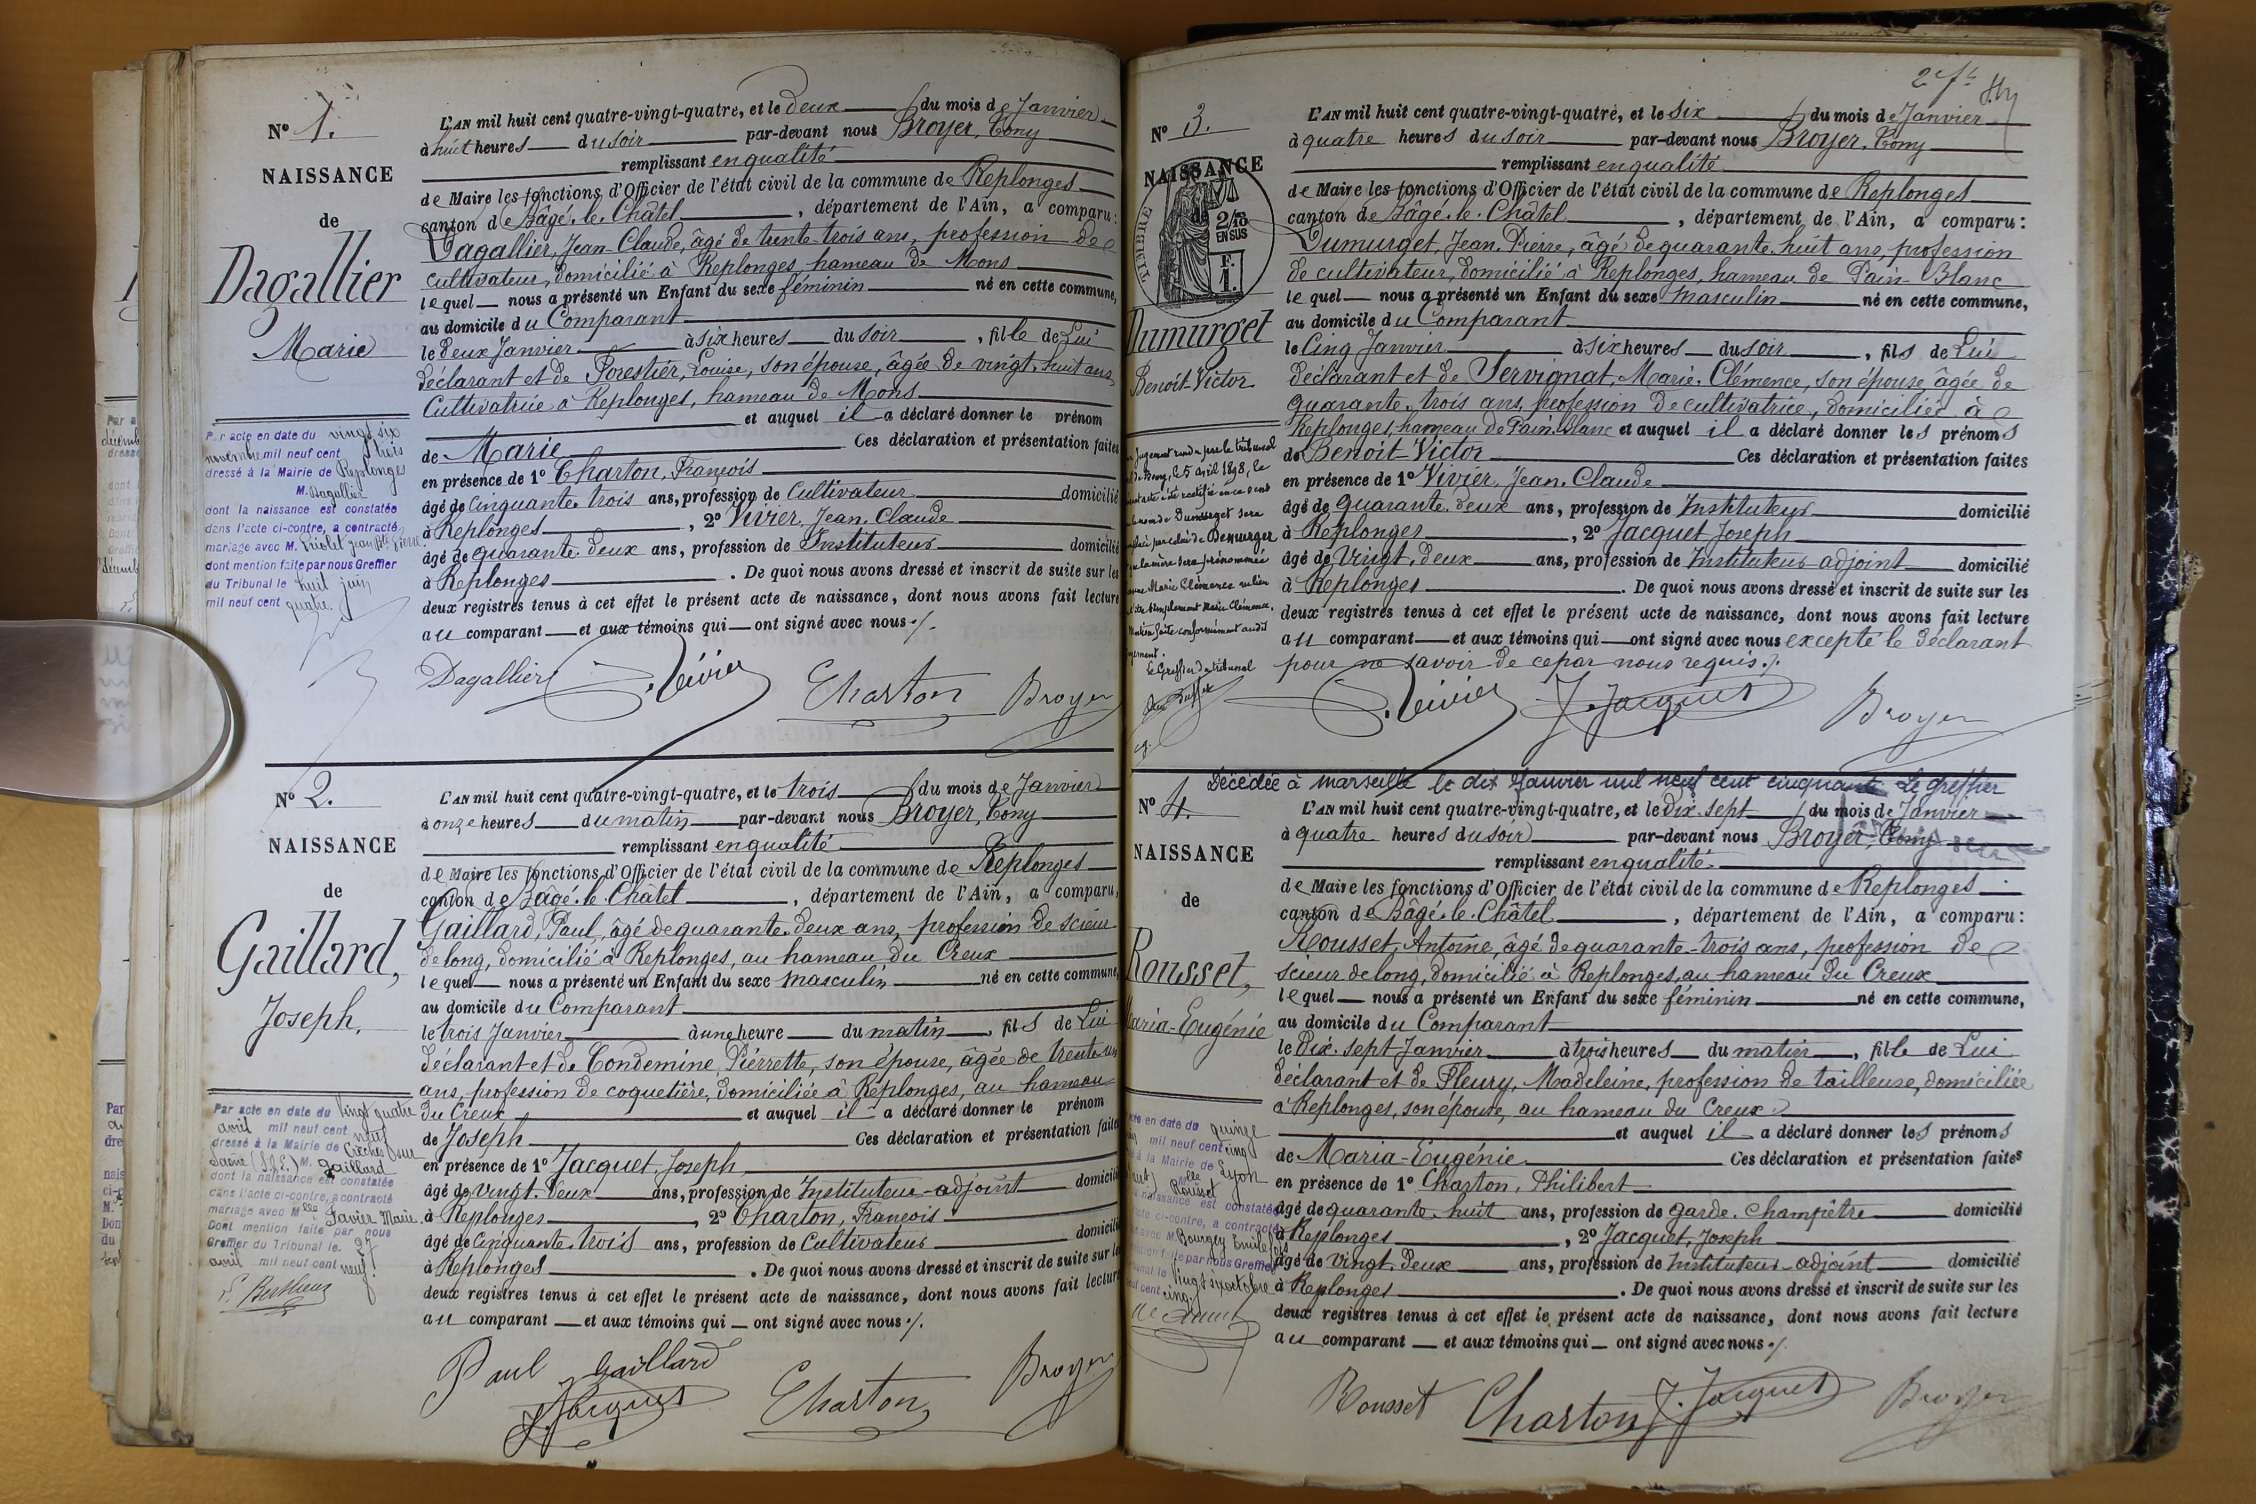 N° 1.
NAISSANCE
de
Dagallier
Marie
Par acte en date du vingt six
novembre mil neuf cent trois
dressé à la Mairie de Replonges
M. Dagallier
dont la naissance est constatée
dans l'acte ci-contre, a contracté
mariage avec M. Violet Jean Bte Pierre
dont mention faite par nous Greffier
du Tribunal le huit juin
mil neuf cent quatre.
L'AN mil huit cent quatre-vingt-quatre, et le deux du mois de Janvier
à huit heures du soir par-devant nous Broyer, Tony
remplissant en qualité
de Maire les fonctions d'Officier de l'état civil de la commune de Replonges
canton de Bâgé-le-Châtel, département de l'Ain, a comparu:
Dagallier, Jean-Claude, âgé de trente trois ans, profession de
cultivateur, domicilié à Replonges hameau de Mons
lequel nous a présenté un Enfant du sexe féminin né en cette commune,
au domicile du Comparant
le deux Janvier à six heures du soir, fille de Lui
déclarant et de Forestier, Louise, son épouse, âgée de vingt-huit ans
Cultivatrice à Replonges, hameau de Mons
et auquel il a déclaré donner le prénom
de Marie Ces déclaration et présentation faites
en présence de 1° Charton, François
âgé de cinquante-trois ans, profession de Cultivateur domicilié
à Replonges, 2° Vivier, Jean-Claude
âgé de quarante-deux ans, profession de Instituteur domicilié
à Replonges. De quoi nous avons dressé et inscrit de suite sur les
deux registres tenus à cet effet le présent acte de naissance, dont nous avons fait lecture
au comparant et aux témoins qui ont signé avec nous ./.
Dagallier Vivier Charton Broyer
N° 2.
NAISSANCE
de
Gaillard,
Joseph.
Par acte en date du vingt quatre
avril mil neuf cent neuf
dressé à la Mairie de Crèches sur
Saône (S.&L.) M. Gaillard
dont la naissance est constatée
dans l'acte ci-contre, a contracté
mariage avec Mlle Javier Marie.
Dont mention faite par nous
Greffier du Tribunal le 27
avril mil neuf cent neuf.
L'AN mil huit cent quatre-vingt-quatre, et le trois du mois de Janvier
à onze heures du matin par-devant nous Broyer, Tony
remplissant en qualité
de Maire les fonctions d'Officier de l'état civil de la commune de Replonges
canton de Bâgé-le-Châtel, département de l'Ain, a comparu,
Gaillard, Paul, âgé de quarante-deux ans, profession de scieur
de long, domicilié à Replonges, au hameau du Creux
lequel nous a présenté un Enfant du sexe masculin né en cette commune,
au domicile du Comparant
le trois Janvier à une heure du matin, fils de Lui
déclarant et de Condemine, Pierrette, son épouse, âgée de trente un
ans, profession de coquetière, domiciliée à Replonges, au hameau
du Creux et auquel il a déclaré donner le prénom
de Joseph Ces déclaration et présentation faites
en présence de 1° Jacquet, Joseph
âgé de vingt-deux ans, profession de Instituteur-adjoint domicilié
à Replonges, 2° Charton, François
âgé de Cinquante-trois ans, profession de Cultivateur domicilié
à Replonges. De quoi nous avons dressé et inscrit de suite sur les
deux registres tenus à cet effet le présent acte de naissance, dont nous avons fait lecture
au comparant et aux témoins qui ont signé avec nous ./.
Paul Gaillard
J. Jacquet Charton Broyer
N° 3.
NAISSANCE
de
TIMBRE
2/10
EN SUS
F.
1.
Dumurget
Benoit-Victor
jugement rendu par le tribunal
de Bourg, le 5 avril 1898, le
le nom de Dumurget sera
par celui de Demurger
Marie Clémence au lieu
simplement Marie Clémence.
Mention faite conformément audit
jugement.
Le Greffier du tribunal
L'AN mil huit cent quatre-vingt-quatre, et le six du mois de Janvier
à quatre heures du soir par-devant nous Broyer, Tony
remplissant en qualité
de Maire les fonctions d'Officier de l'état civil de la commune de Replonges
canton de Bâgé-le-Châtel, département de l'Ain, a comparu:
Dumurget, Jean-Pierre, âgé de quarante-huit ans, profession
de cultivateur, domicilié à Replonges, hameau de Pain-Blanc
lequel nous a présenté un Enfant du sexe masculin né en cette commune,
au domicile du Comparant
le Cinq Janvier à six heures du soir, fils de Lui
déclarant et de Servignat, Marie-Clémence, son épouse âgée de
quarante-trois ans, profession de cultivatrice, domiciliée à
Replonges, hameau de Pain-Blanc et auquel il a déclaré donner les prénoms
de Benoit-Victor Ces déclaration et présentation faites
en présence de 1° Vivier, Jean-Claude
âgé de quarante-deux ans, profession de Instituteur domicilié
à Replonges, 2° Jacquet Joseph
âgé de Vingt-deux ans, profession de Instituteur-adjoint domicilié
à Replonges. De quoi nous avons dressé et inscrit de suite sur les
deux registres tenus à cet effet le présent acte de naissance, dont nous avons fait lecture
au comparant et aux témoins qui ont signé avec nous excepté le déclarant
pour ne savoir de ce par nous requis ./.
Vivier J. Jacquet Broyer
Décédée à Marseille le dix Janvier mil neuf cent cinquante Le greffier
N° 4.
NAISSANCE
de
Rousset,
Maria-Eugénie
acte en date du quinze
mil neuf cent cinq
à la Mairie de Lyon
Mlle Rousset
naissance est constatée
ci-contre, a contracté
avec M. Bourgey Emile
faite par nous Greffier
vingt six octobre
cent cinq.
L'AN mil huit cent quatre-vingt-quatre, et le Dix-sept du mois de Janvier
à quatre heures du soir par-devant nous Broyer, Tony
remplissant en qualité
de Maire les fonctions d'Officier de l'état civil de la commune de Replonges
canton de Bâgé-le-Châtel, département de l'Ain, a comparu:
Rousset, Antoine, âgé de quarante-trois ans, profession de
scieur de long, domicilié à Replonges, au hameau du Creux
lequel nous a présenté un Enfant du sexe féminin né en cette commune,
au domicile du Comparant
le Dix-sept Janvier à trois heures du matin, fille de Lui
déclarant et de Fleury, Madeleine, profession de tailleuse, domiciliée
à Replonges, son épouse, au hameau du Creux
et auquel il a déclaré donner les prénoms
de Maria-Eugénie Ces déclaration et présentation faites
en présence de 1° Charton, Philibert
âgé de quarante-huit ans, profession de garde-champêtre domicilié
à Replonges, 2° Jacquet, Joseph
âgé de vingt-deux ans, profession de Instituteur-adjoint domicilié
à Replonges. De quoi nous avons dressé et inscrit de suite sur les
deux registres tenus à cet effet le présent acte de naissance, dont nous avons fait lecture
au comparant et aux témoins qui ont signé avec nous ./.
Rousset Charton J. Jacquet Broyer